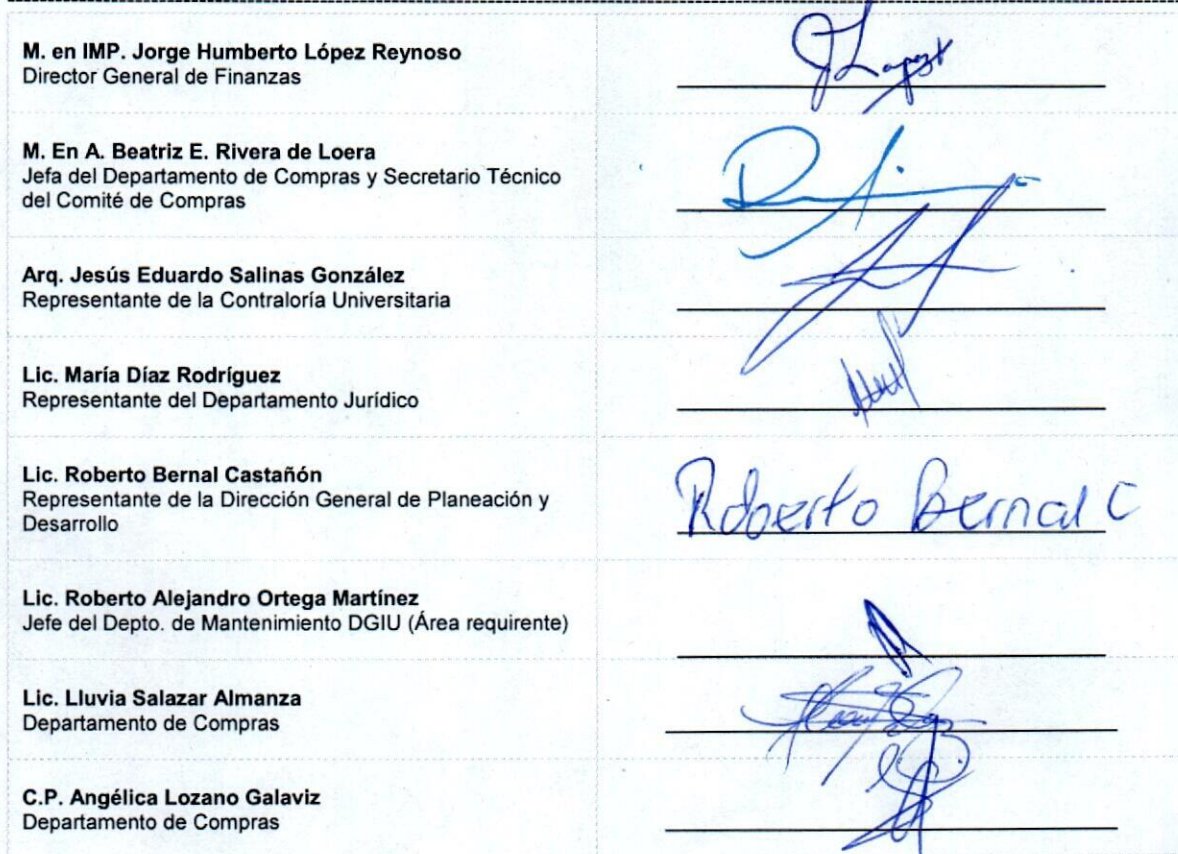 M. en IMP. Jorge Humberto López Reynoso
Director General de Finanzas
M. En A. Beatriz E. Rivera de Loera
Jefa del Departamento de Compras y Secretario Técnico
del Comité de Compras
Arq. Jesús Eduardo Salinas González
Representante de la Contraloría Universitaria
Lic. María Díaz Rodríguez
Representante del Departamento Jurídico
Lic. Roberto Bernal Castañón
Representante de la Dirección General de Planeación y
Desarrollo
Roberto Bernal C
Lic. Roberto Alejandro Ortega Martínez
Jefe del Depto. de Mantenimiento DGIU (Área requirente)
Lic. Lluvia Salazar Almanza
Departamento de Compras
C.P. Angélica Lozano Galaviz
Departamento de Compras